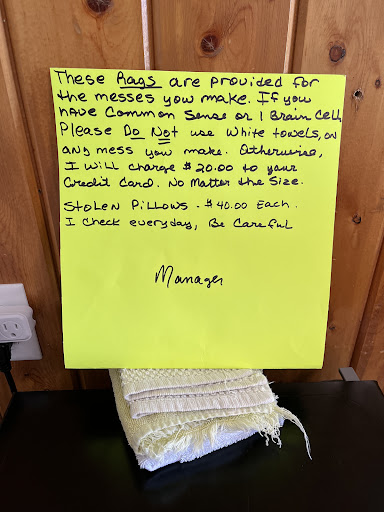 These Rags are provided for
the messes you make. If you
have Common Sense or 1 Brain Cell,
Please Do Not use white towels, on
any mess you make. Otherwise,
I will charge $20.00 to your
Credit Card. No Matter the Size.
Stolen Pillows - $40.00 Each.
I check everyday, Be Careful
Manager